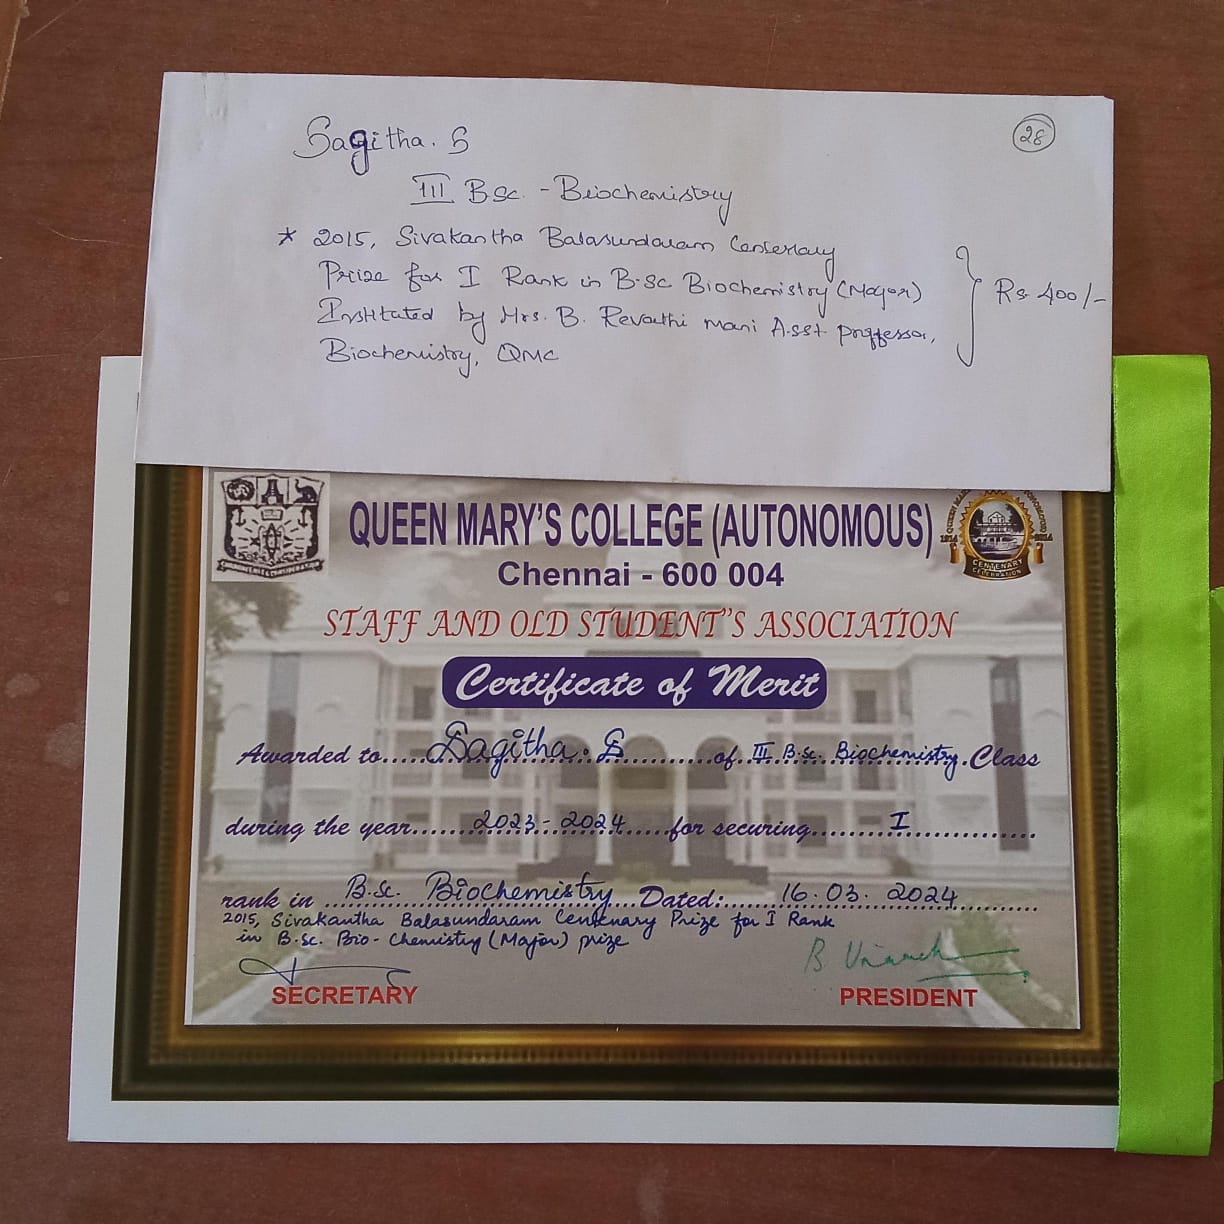 Sagitha. S
28
III B.Sc. - Biochemistry
* 2015, Sivakantha Balasundaram Centenary
Prize for I Rank in B.Sc Biochemistry (Major)
Instituted by Mrs. B. Revathi mani Asst proffessor,
Biochemistry, QMC
Rs 400/-
QUEEN MARY'S COLLEGE (AUTONOMOUS)
Chennai - 600 004
CENTENARY
CELEBRATION
STAFF AND OLD STUDENT"S ASSOCIATION
Certificate of Merit
Awarded to.....Sagitha. S.....of III B.Sc. Biochemistry Class
during the year.....2023-2024.....for securing.....I.....
rank in B.Sc. Biochemistry Dated:.....16.03.2024.....
2015, Sivakantha Balasundaram Centenary Prize for I Rank
in B.Sc. Bio-Chemistry (Major) prize
SECRETARY
PRESIDENT